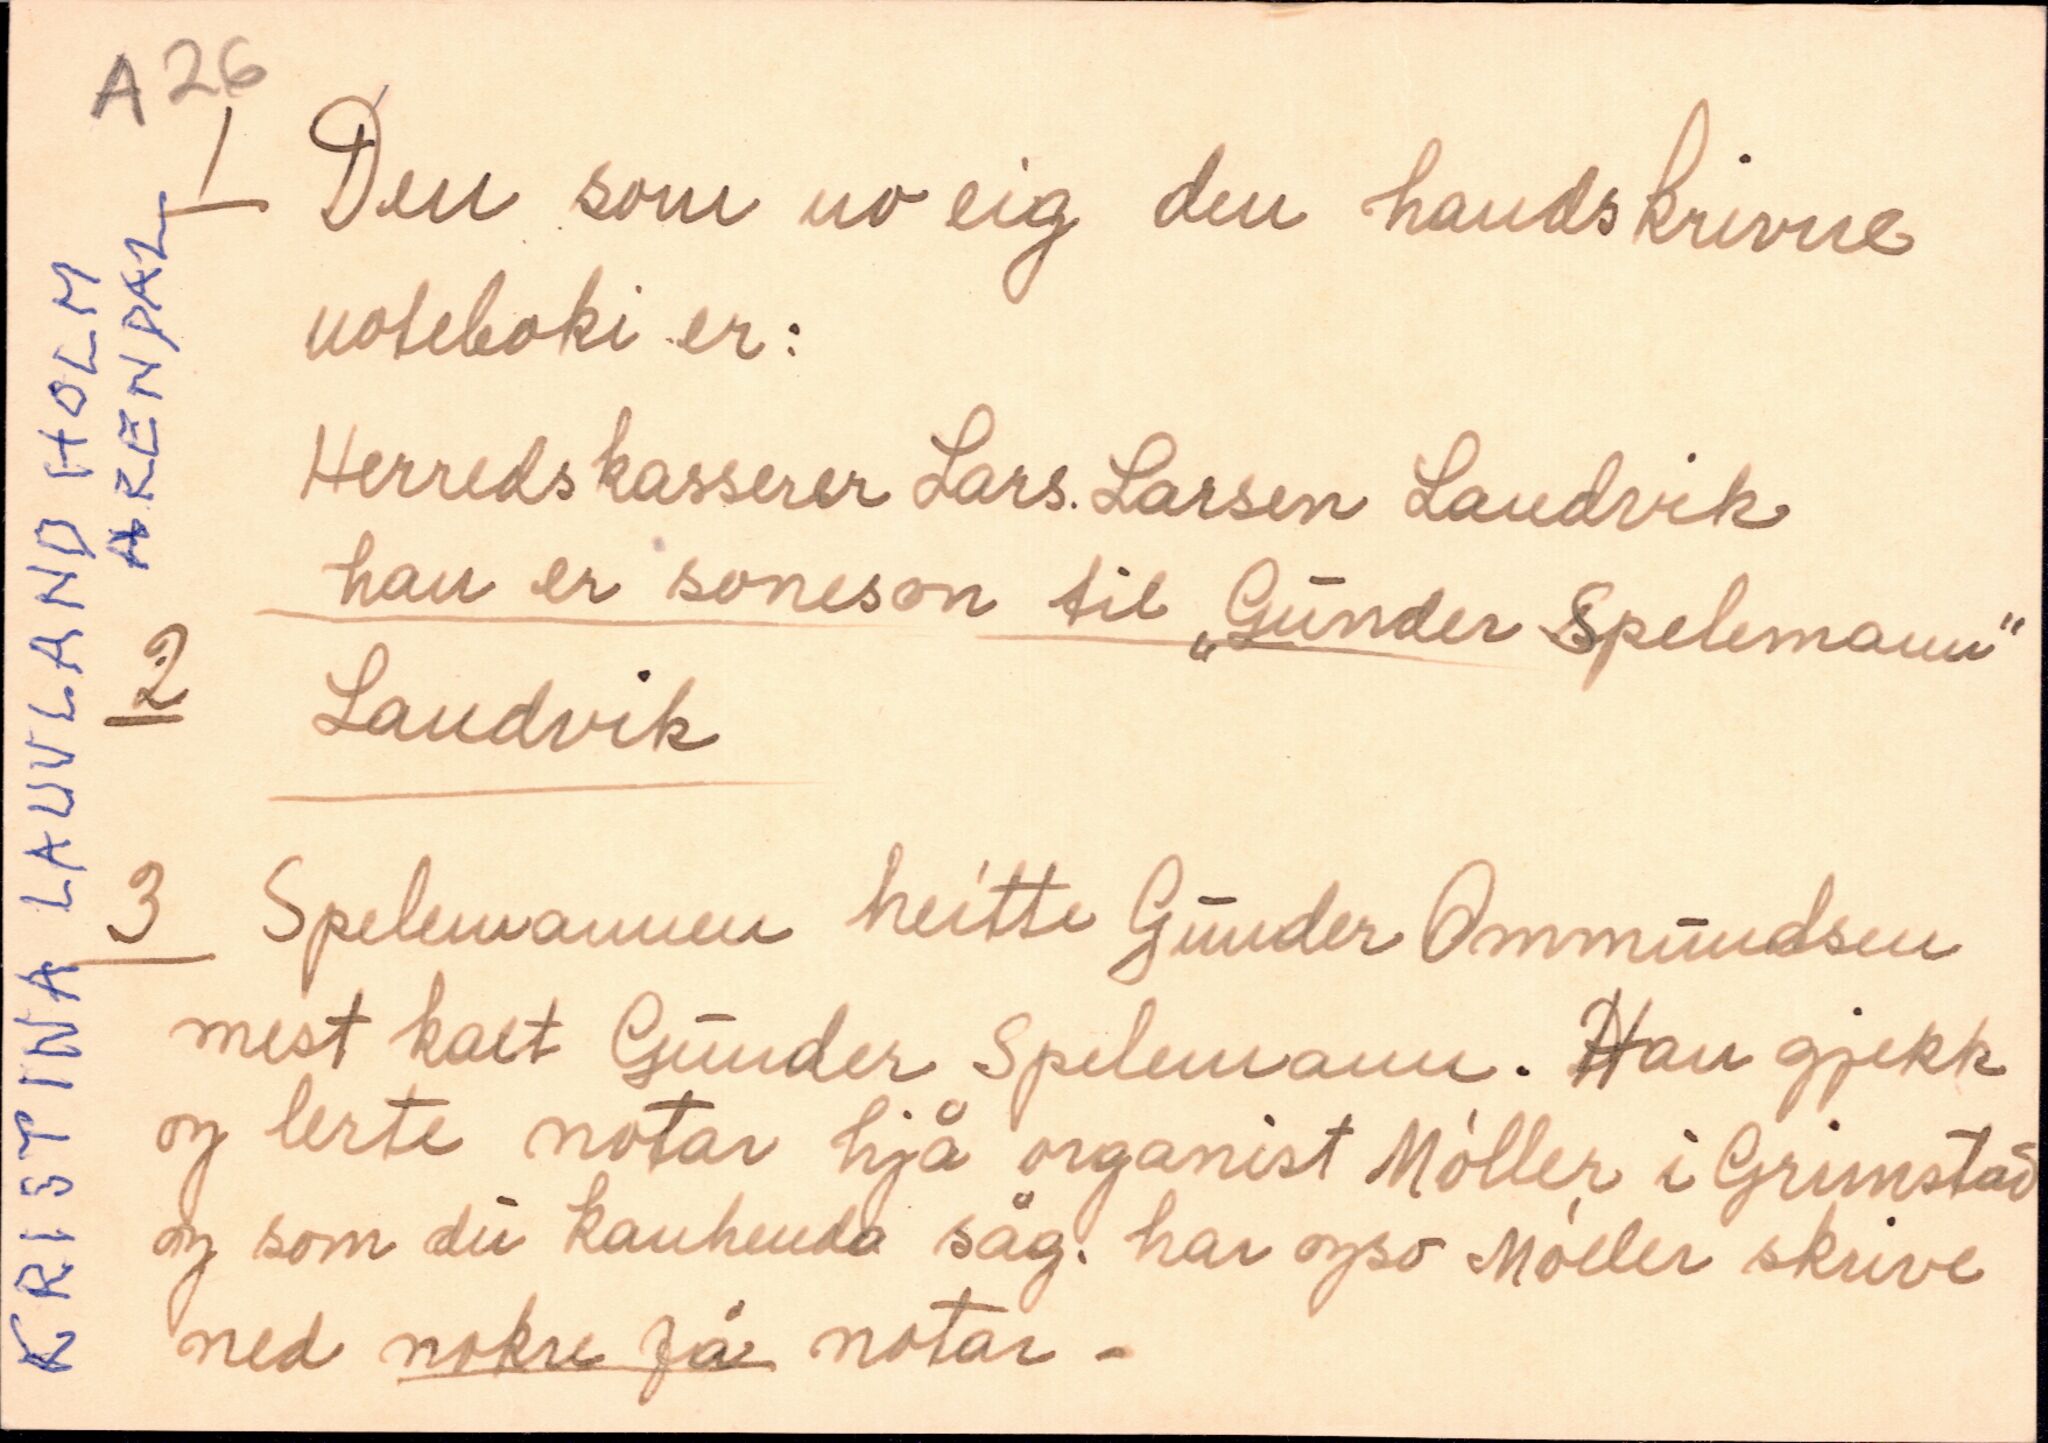 A 26
KRISTINA LAUVLAND HOLM
ARENDAL
1 Den som no eig den handskrivne
noteboki er:
Herredskasserer Lars. Larsen Landvik
han er soneson til „Gūnder Spelemann“
2 Landvik
3 Spelemannen heitte Gūnder Ommūndsen
mest kalt Gūnder Spelemann. Han gjekk
og lerte notar hjå organist Móller i Grimstad
og som dū kanhenda såg. har ogso Móller skrive
ned nokre få notar -